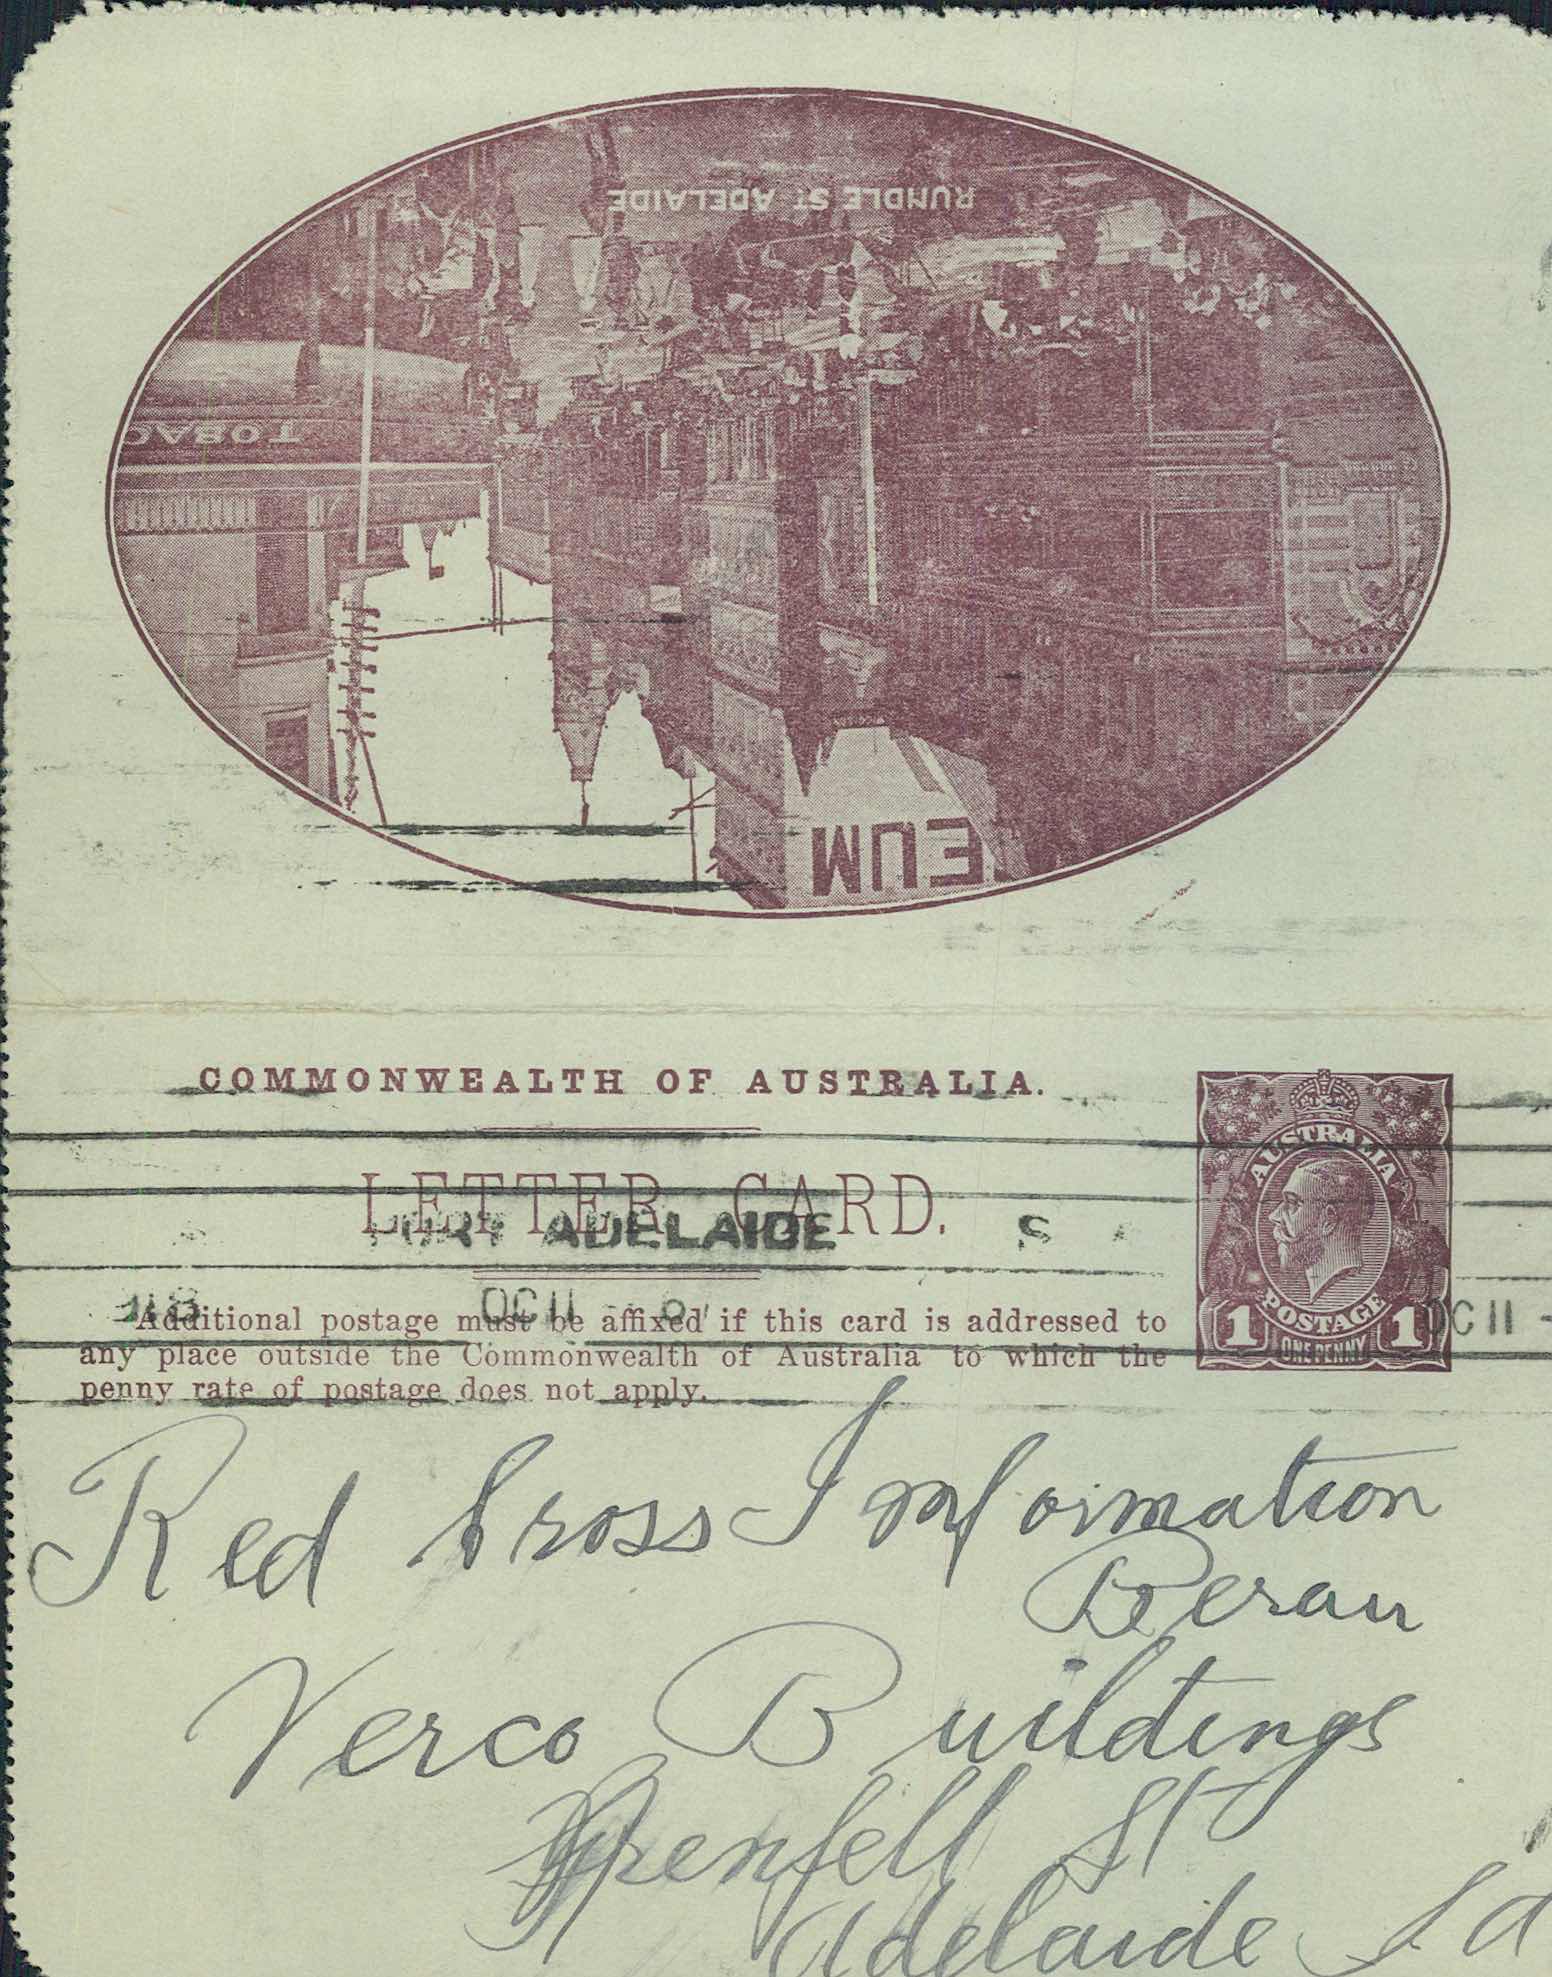 RUNDLE ST ADELAIDE
TOBAC
EUM
COMMONWEALTH OF AUSTRALIA.
LETTER CARD.
PORT ADELAIDE S
OC 11
OC 11 -
AUSTRALIA
POSTAGE
1 ONE PENNY 1
Additional postage must be affixed if this card is addressed to
any place outside the Commonwealth of Australia to which the
penny rate of postage does not apply.
Red Cross Information
Berau
Verco Buildings
Grenfell St
Adelaide S A